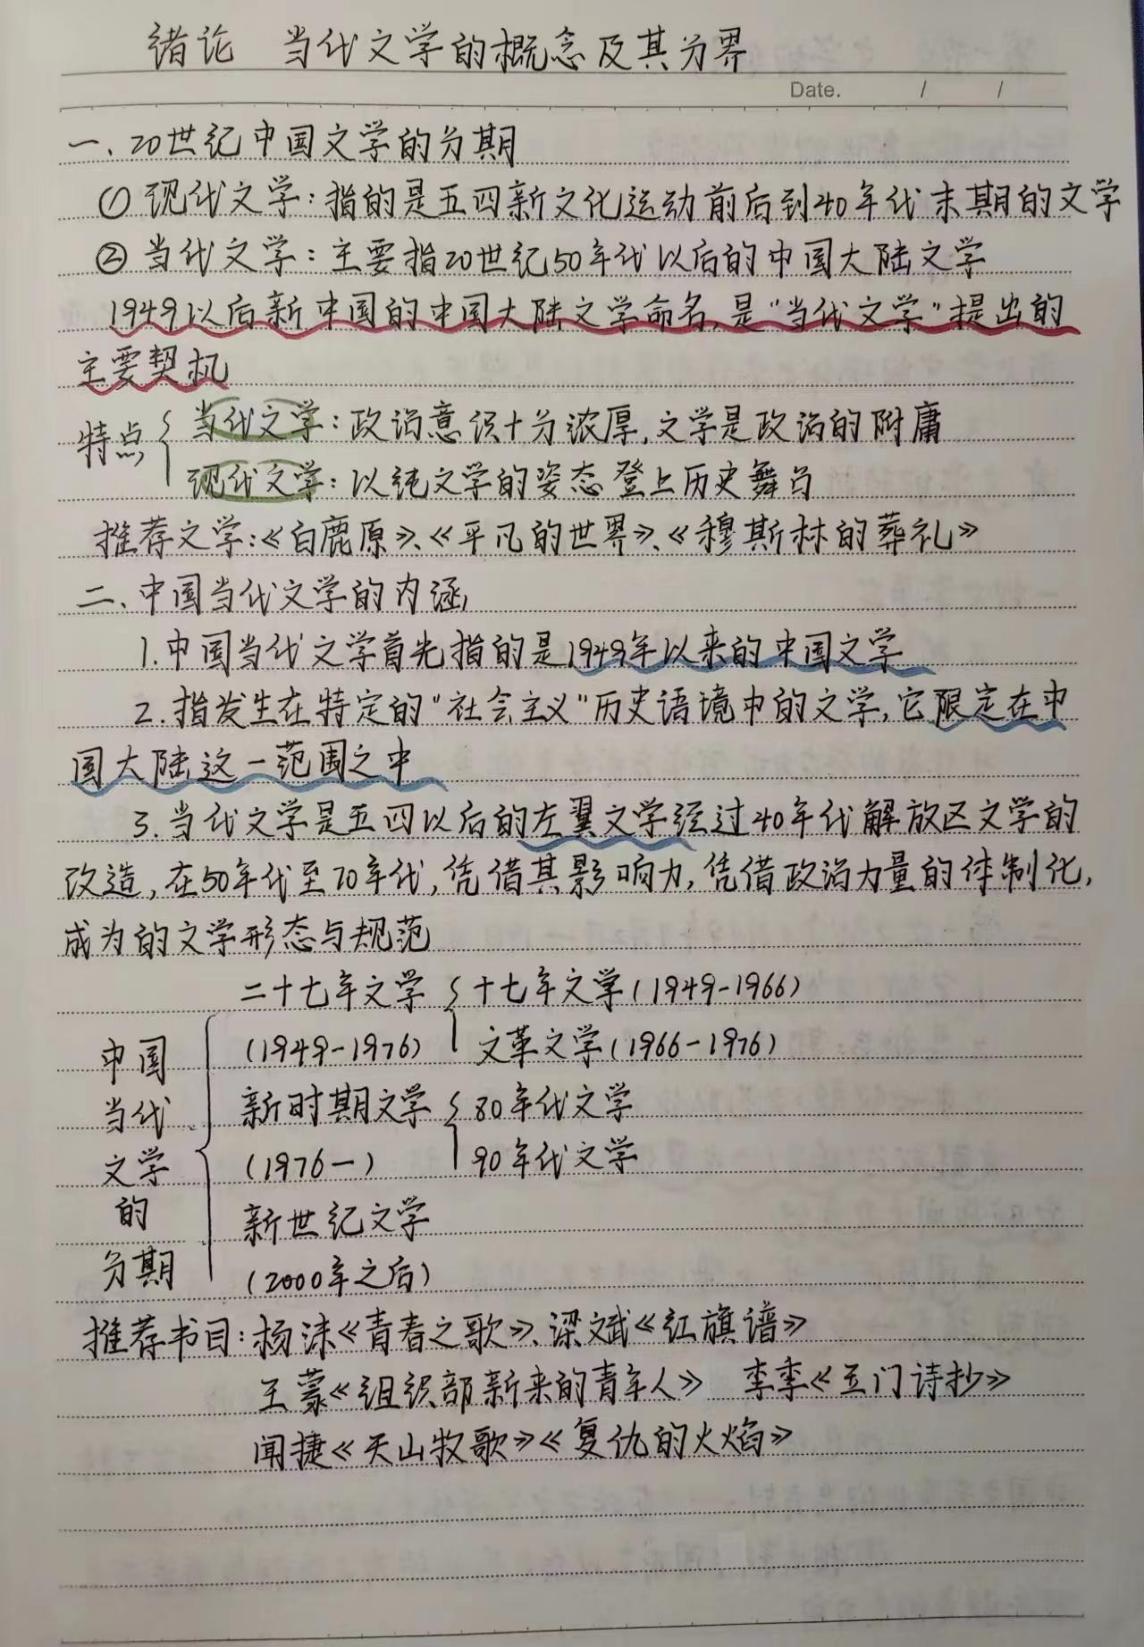 绪论 当代文学的概念及其分界
Date. / /
一、20世纪中国文学的分期
① 现代文学：指的是五四新文化运动前后到40年代末期的文学
② 当代文学：主要指20世纪50年代以后的中国大陆文学
1949以后新中国的中国大陆文学命名，是"当代文学"提出的
主要契机
特点 { 当代文学：政治意识十分浓厚，文学是政治的附庸
现代文学：以纯文学的姿态登上历史舞台
推荐文学：《白鹿原》、《平凡的世界》、《穆斯林的葬礼》
二、中国当代文学的内涵
1.中国当代文学首先指的是1949年以来的中国文学
2.指发生在特定的"社会主义"历史语境中的文学，它限定在中
国大陆这一范围之中
3.当代文学是五四以后的左翼文学经过40年代解放区文学的
改造，在50年代至70年代，凭借其影响力，凭借政治力量的体制化，
成为的文学形态与规范
二十七年文学 { 十七年文学（1949-1966）
中国 （1949-1976） 文革文学（1966-1976）
当代 新时期文学 { 80年代文学
文学 （1976-） 90年代文学
的 新世纪文学
分期 （2000年之后）
推荐书目：杨沫《青春之歌》、梁斌《红旗谱》
王蒙《组织部新来的青年人》 李季《玉门诗抄》
闻捷《天山牧歌》《复仇的火焰》